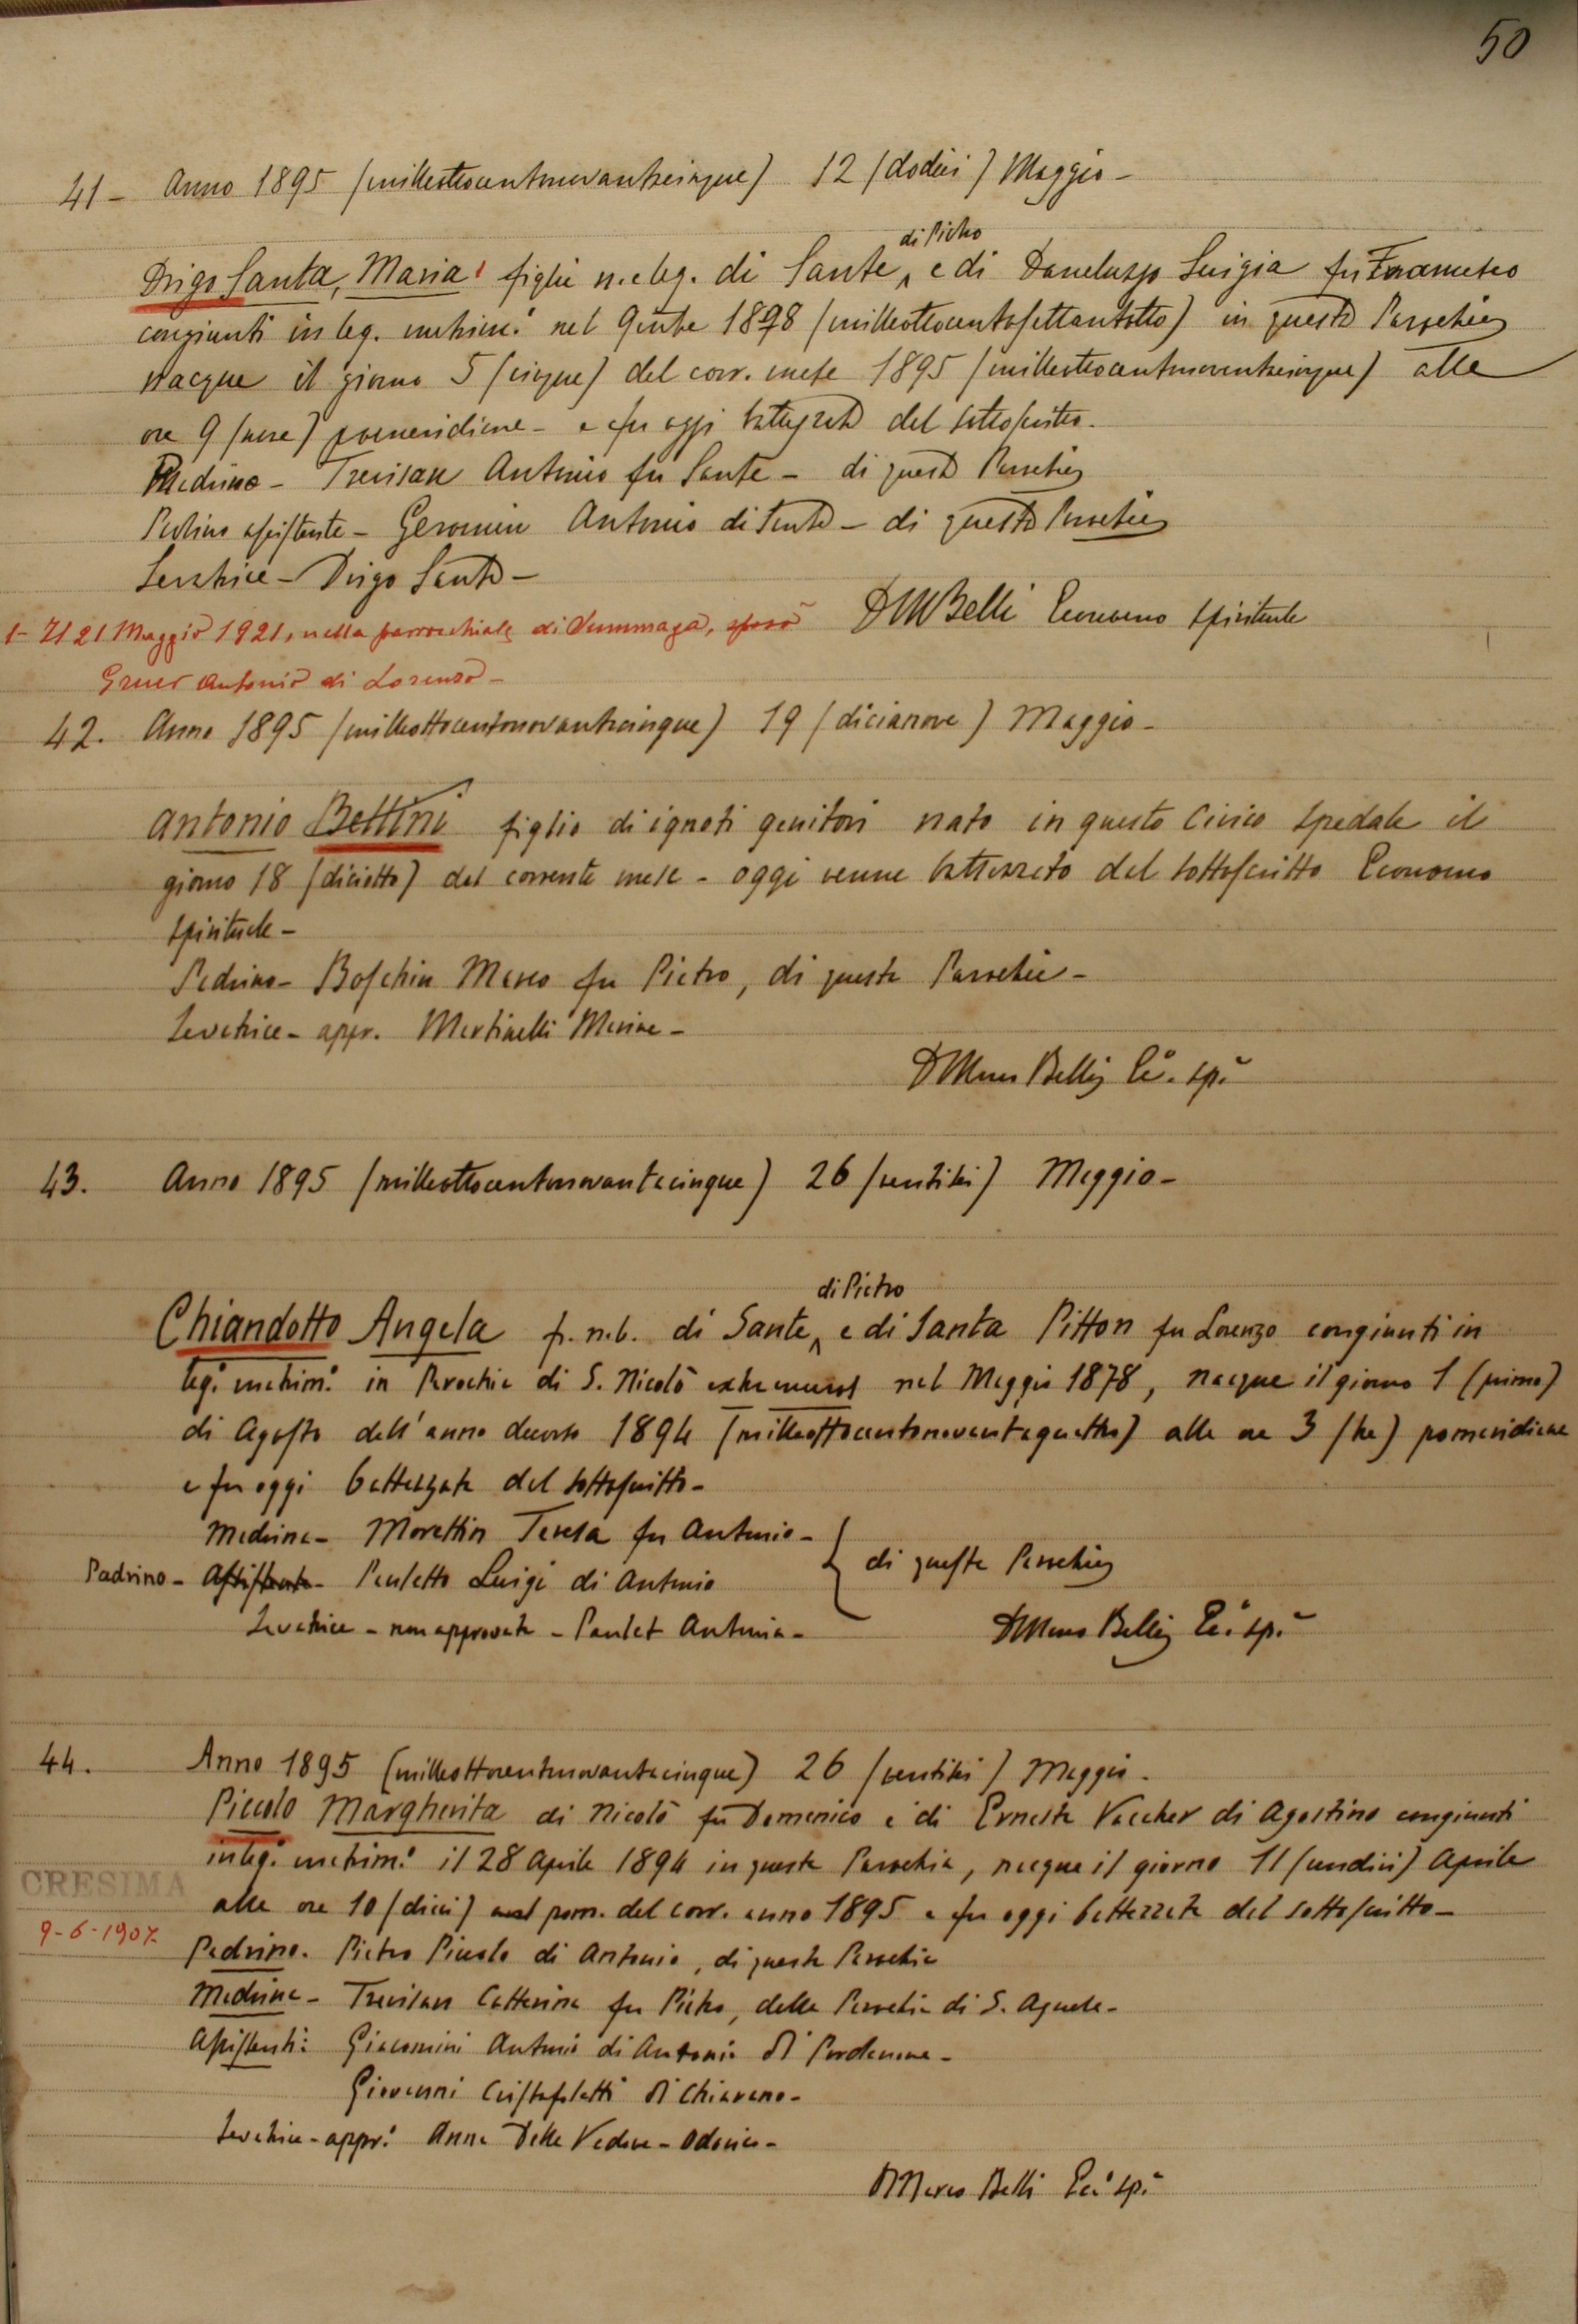 50
41- Anno 1895 (milleottocentonovantacinque) 12 (dodici) Maggio-
di Pietro
Drigo Santa, Maria figlia n. e leg. di Sante e di Daneluzzo Luigia fu Francesco
congiunti in leg. matrim.o nel 9mbre 1878 (milleottocentosettantotto) in questa Parrochia
nacque il giorno 5 (cinque) del corr. mese 1895 (milleottocentonovantacinque) alla
ore 9 (nove) pomeridiane - e fu oggi battezzata dal sottoscritto.
Padrino - Trevisan Antonio fu Sante - di questa Parrochia
Padrino assistente - Geromin Antonio di Santo - di questa Parrochia
Levatrice - Drigo Santa -
DMBelli Economo spirituale
1- Il 21 Maggio 1921, nella parrocchiale di Summaga, sposò
Gruer Antonio di Lorenzo -
42. Anno 1895 (milleottocentonovantacinque) 19 (dicianove) Maggio -
Antonio Bettini figlio di ignoti genitori nato in questo Civico Spedale il
giorno 18 (diciotto) del corrente mese - oggi venne battezzato dal sottoscritto Economo
spirituale -
Padrino - Boschin Marco fu Pietro, di questa Parrochia -
Levatrice - appr. Martinelli Marina -
D Marco Belli Ec.o sp.e
43. Anno 1895 (milleottocentonovantacinque) 26 (ventisei) Maggio -
di Pietro
Chiandotto Angela f. n. l. di Sante e di Santa Pitton fu Lorenzo congiunti in
leg.o matrim.o in Parochia di S. Nicolò extra muros nel Maggio 1878, nacque il giorno 1 (primo)
di Agosto dell'anno decorso 1894 (milleottocentonovantaquattro) alle ore 3 (tre) pomeridiane
e fu oggi battezzata dal sottoscritto -
Madrina - Morettin Teresa fu Antonio -
Padrino - Assistente - Pauletto Luigi di Antonio
di questa Parrochia
Levatrice - non approvata - Paulet Antonia -
D Marco Belli Ec.o sp.e
44. Anno 1895 (milleottocentonovantacinque) 26 (ventisei) Maggio.
Piccolo Margherita di Nicolò fu Domenico e di Ernesta Vaccher di Agostino congiunti
in leg.o matrim.o il 28 Aprile 1894 in questa Parrochia, nacque il giorno 11 (undici) Aprile
CRESIMA
alle ore 10 (dieci) pom. del corr. anno 1895 e fu oggi battezzata dal sottoscritto -
9-6-1907
Padrino. Pietro Piccolo di Antonio, di questa Parrochia
Madrina - Trevisan Catterina fu Pietro, della Parrochia di S. Agnese -
Assistenti: Giacomini Antonio di Antonio di Pordenone -
Giovanni Cristofoletti di Chiarano -
Levatrice - appr.a Anna Dalla Vedova - Odorico -
D Marco Belli Ec.o sp.e